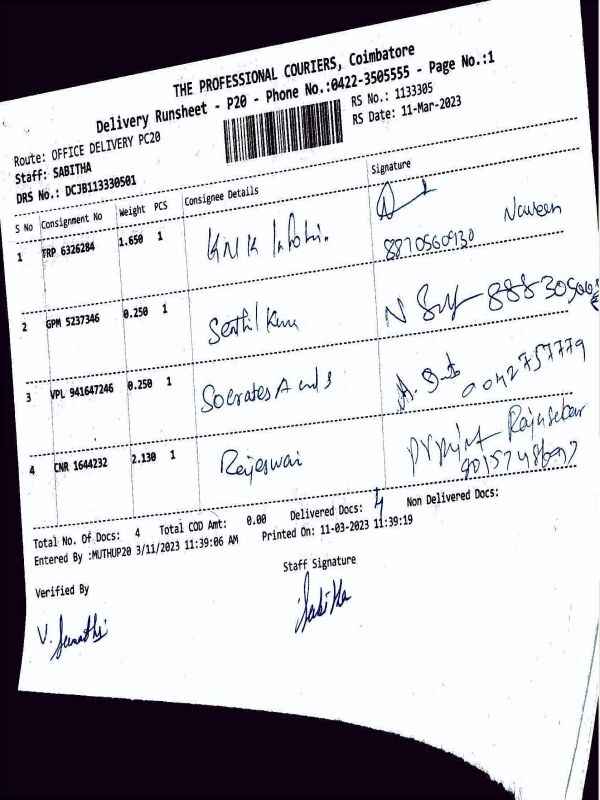 THE PROFESSIONAL COURIERS, Coimbatore
Delivery Runsheet - P20 - Phone No.:0422-3505555 - Page No.:1
Route: OFFICE DELIVERY PC20
RS No.: 1133305
Staff: SABITHA
RS Date: 11-Mar-2023
DRS No.: DCJB113330501
S No Consignment No Weight PCS Consignee Details Signature
1 TRP 6326284 1.650 1 KMK
8870560930 Naveen
2 GPM 5237346 0.250 1 Senthil
N
3 VPL 941647246 0.250 1 Socrates A
4 CNR 1644232 2.130 1 Rajeswari
Rajasekar
Total No. Of Docs: 4 Total COD Amt: 0.00 Delivered Docs: 4 Non Delivered Docs:
Entered By :MUTHUP20 3/11/2023 11:39:06 AM Printed On: 11-03-2023 11:39:19
Verified By Staff Signature
V. Sabitha